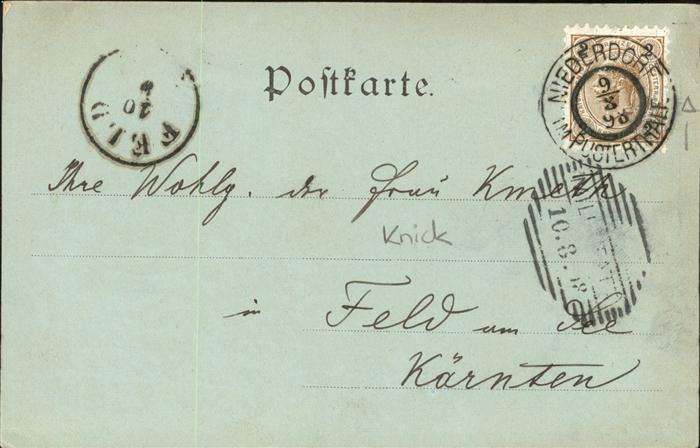 Postkarte.
2 2
NIEDERDORF
9
8
98
IM PUSTERTHALE
FELD
10
8
Ihre Wohlg. der Frau Kmeth
Knick
10.8.98
in Feld am See
Kärnten